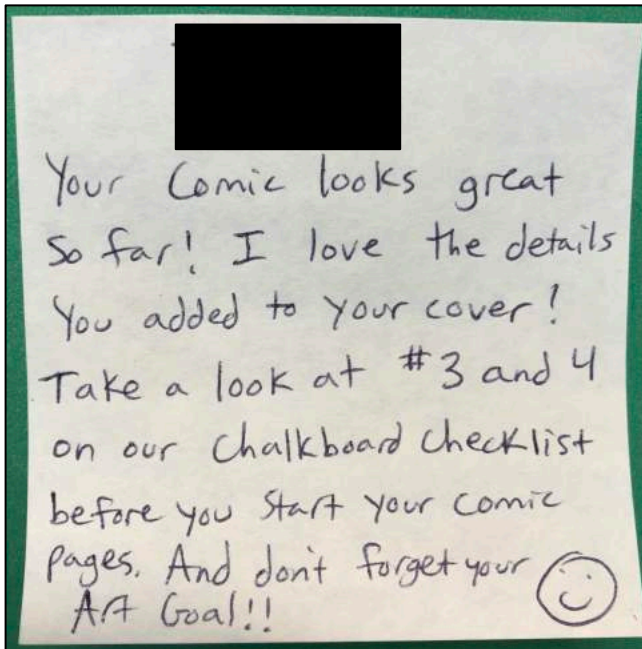 Your Comic looks great
So far! I love the details
You added to your cover!
Take a look at #3 and 4
on our Chalkboard Checklist
before you Start your comic
pages. And don't forget your
Art Goal!!